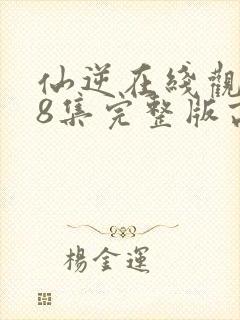 仙逆在綫觀
8集完整版
楊金運